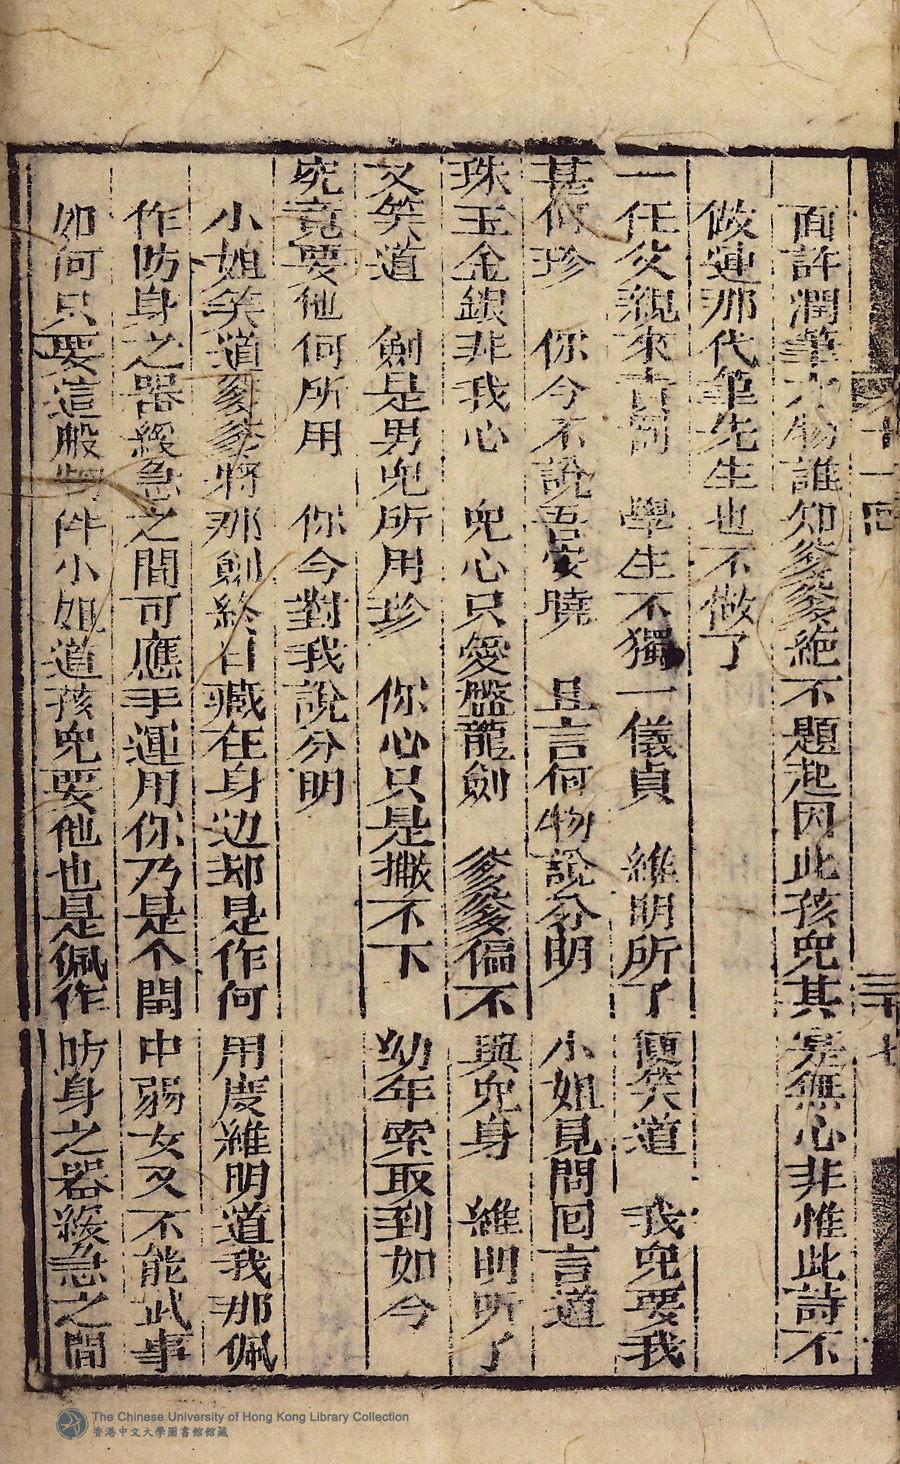 面許潤筆之物誰知爹爹絕不題起因此孩兒其寔無心非惟此詩不
做連那代筆先生也不做了
一任父親來責罰　學生不獨一儀貞　維明所了便笑道　我兒要我
甚何珍　你今不說吾安曉　且言何物說分明　小姐見問回言道
珠玉金銀非我心　兒心只愛盤龍劍　爹爹偏不與兒身　維明听了
又笑道　劍是男兒所用珍　你心只是撇不下　幼年索取到如今
究竟要他何所用　你今對我說分明
小姐笑道爹爹將那劍終日藏在身边却是作何用度維明道我那佩
作防身之器緩急之間可應手運用你乃是个閨中弱女又不能武事
如何只要這般物件小姐道孩兒要他也是佩作防身之器緩急之間
十一回
三十七
The Chinese University of Hong Kong Library Collection
香港中文大學圖書館館藏